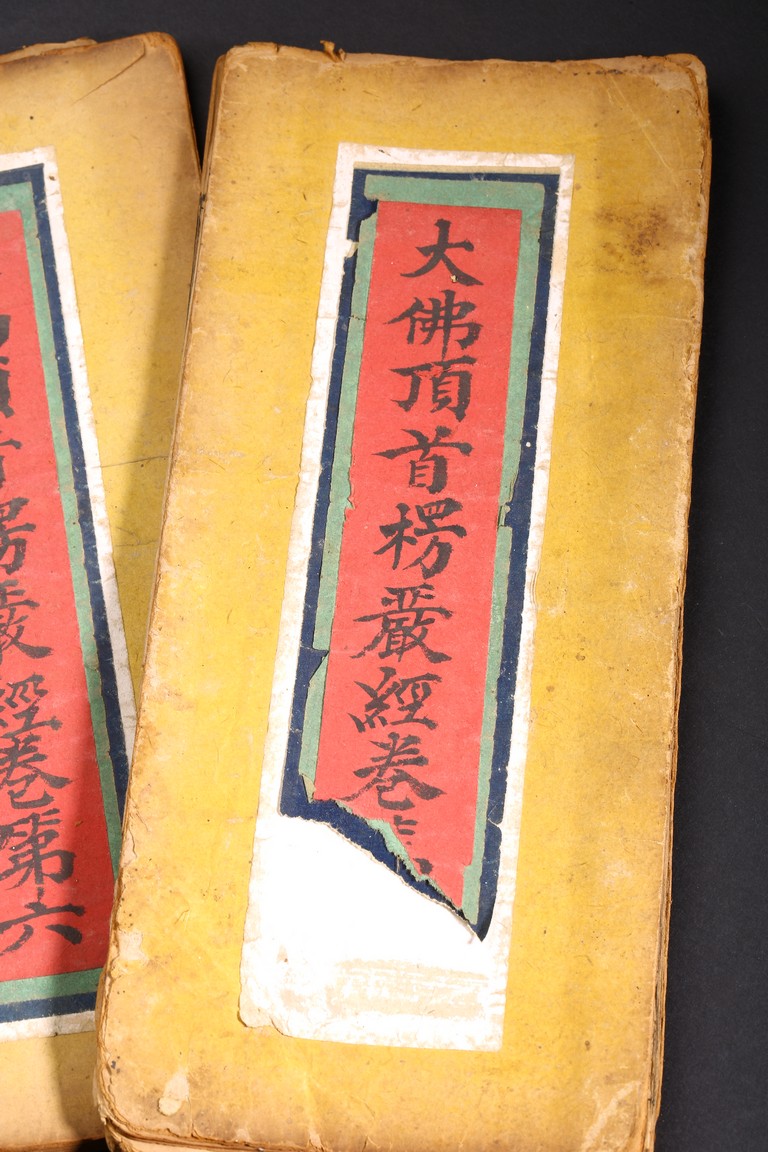 大佛頂首楞嚴經卷
首楞嚴經卷第六